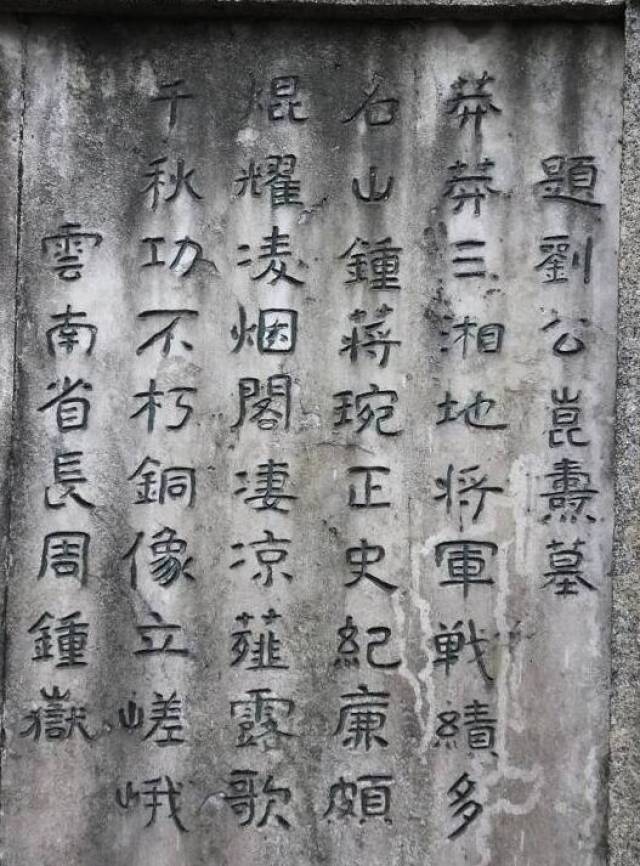 題劉公崑燾墓
莽莽三湘地将軍戦績多
名山鍾蒋琬正史紀廉頗
焜耀凌烟閣凄凉薤露歌
千秋功不朽銅像立嵯峨
雲南省長周鍾嶽